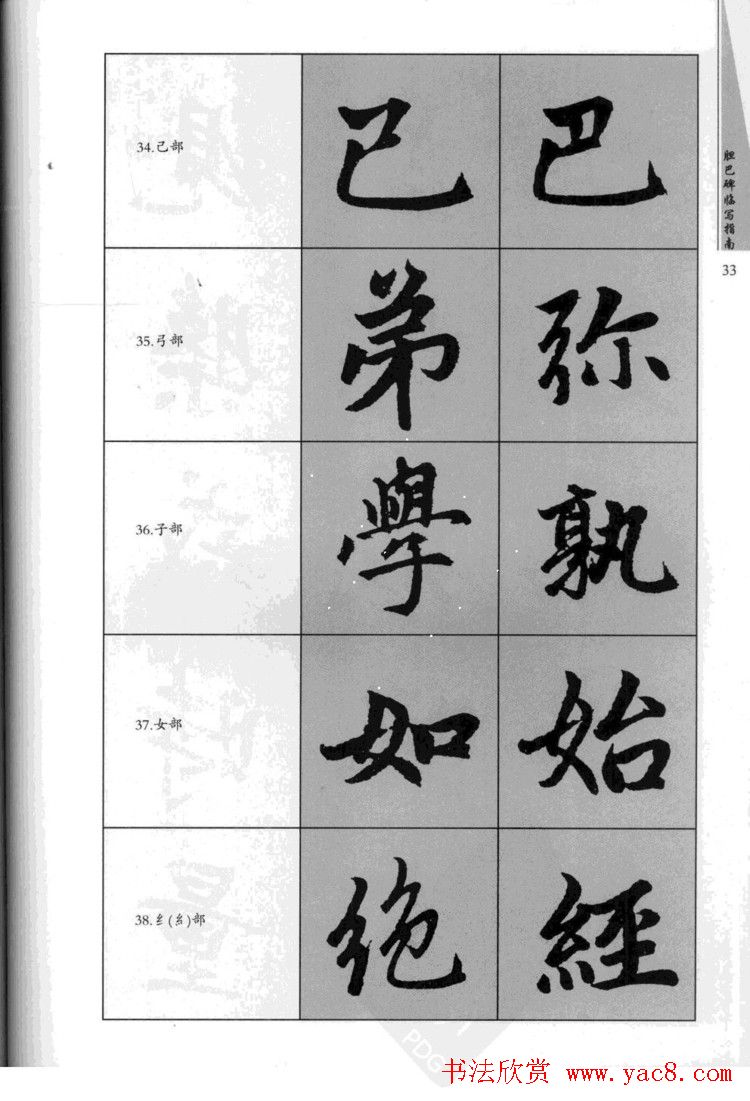 34.己部
己 巴
35.弓部
弟 弥
36.子部
學 孰
37.女部
如 始
38.纟(糹)部
绝 經
胆巴碑临写指南
33
书法欣赏 www.yac8.com